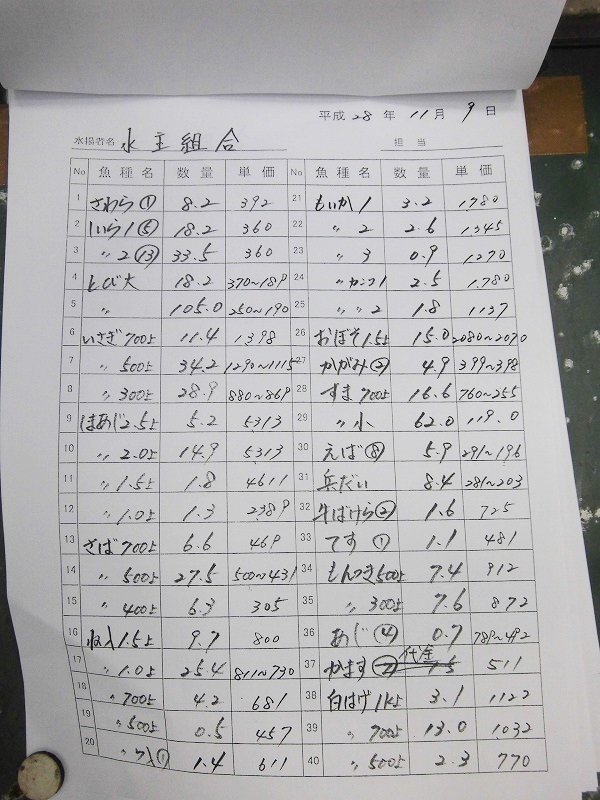 平成 28 年 11 月 9 日
水揚者名 水主組合 担当
No 魚種名 数量 単価 No 魚種名 数量 単価
1 さわら① 8.2 392 21 もいか1 3.2 1,780
2 いら1⑤ 18.2 360 22 〃 2 2.6 1,345
3 〃2⑬ 33.5 360 23 〃 3 0.9 1270
4 とび大 18.2 370~189 24 2.5 1,780
5 〃 105.0 250~190 25 〃〃2 1.8 1137
6 いさぎ700上 11.4 1398 26 おぼそ1.5上 15.0 2080~2070
7 〃500上 34.2 1290~1115 27 かがみ② 4.9 399~398
8 〃300上 28.9 880~869 28 すま700上 16.6 760~255
9 はあじ2.5上 5.2 5313 29 〃小 62.0 119.0
10 〃2.0上 14.9 5313 30 えば⑧ 5.9 291~196
11 〃1.5上 1.8 4611 31 兵だい 8.4 281~203
12 〃1.0上 1.3 2389 32 牛ばけら② 1.6 725
13 さば700上 6.6 469 33 てす① 1.1 481
14 〃500上 27.5 500~431 34 もんつき500上 7.4 912
15 〃400上 6.3 305 35 〃300上 7.6 872
16 収入1.5上 9.7 800 36 あじ④ 0.7 789~492
17 〃1.0上 25.4 811~730 37 かます② 1.5 511
18 〃700上 4.2 681 38 白はげ1K上 3.1 1122
19 〃500上 0.5 457 39 〃700上 13.0 1032
20 1.4 611 40 〃500上 2.3 770